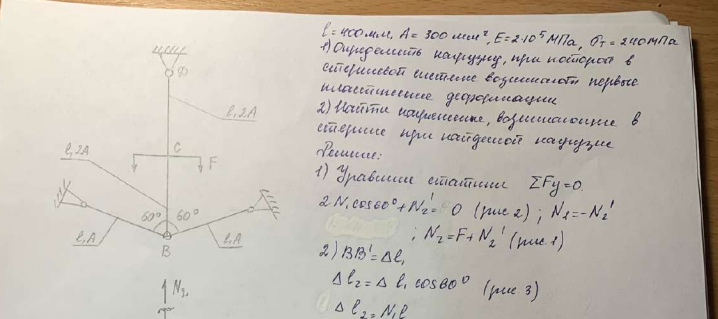 l=400мм, A=300мм², E=2·10⁵МПа, σт=240МПа
1) Определить нагрузку, при которой в
стержневой системе возникают первые
пластические деформации
2) Найти напряжения, возникающие в
стержне при найденой нагрузке
Решение:
1) Уравнение статики ΣFy=0
2N₁cos60°+N₂'=0 (рис 2); N₁=-N₂'
; N₂=F+N₂' (рис 1)
2) BB'=Δl₁
Δl₂=Δl₁cos60° (рис 3)
Δl₂=N₁l
D
l,2A
C
F
l,2A
60° 60°
l,A
l,A
B
N₂